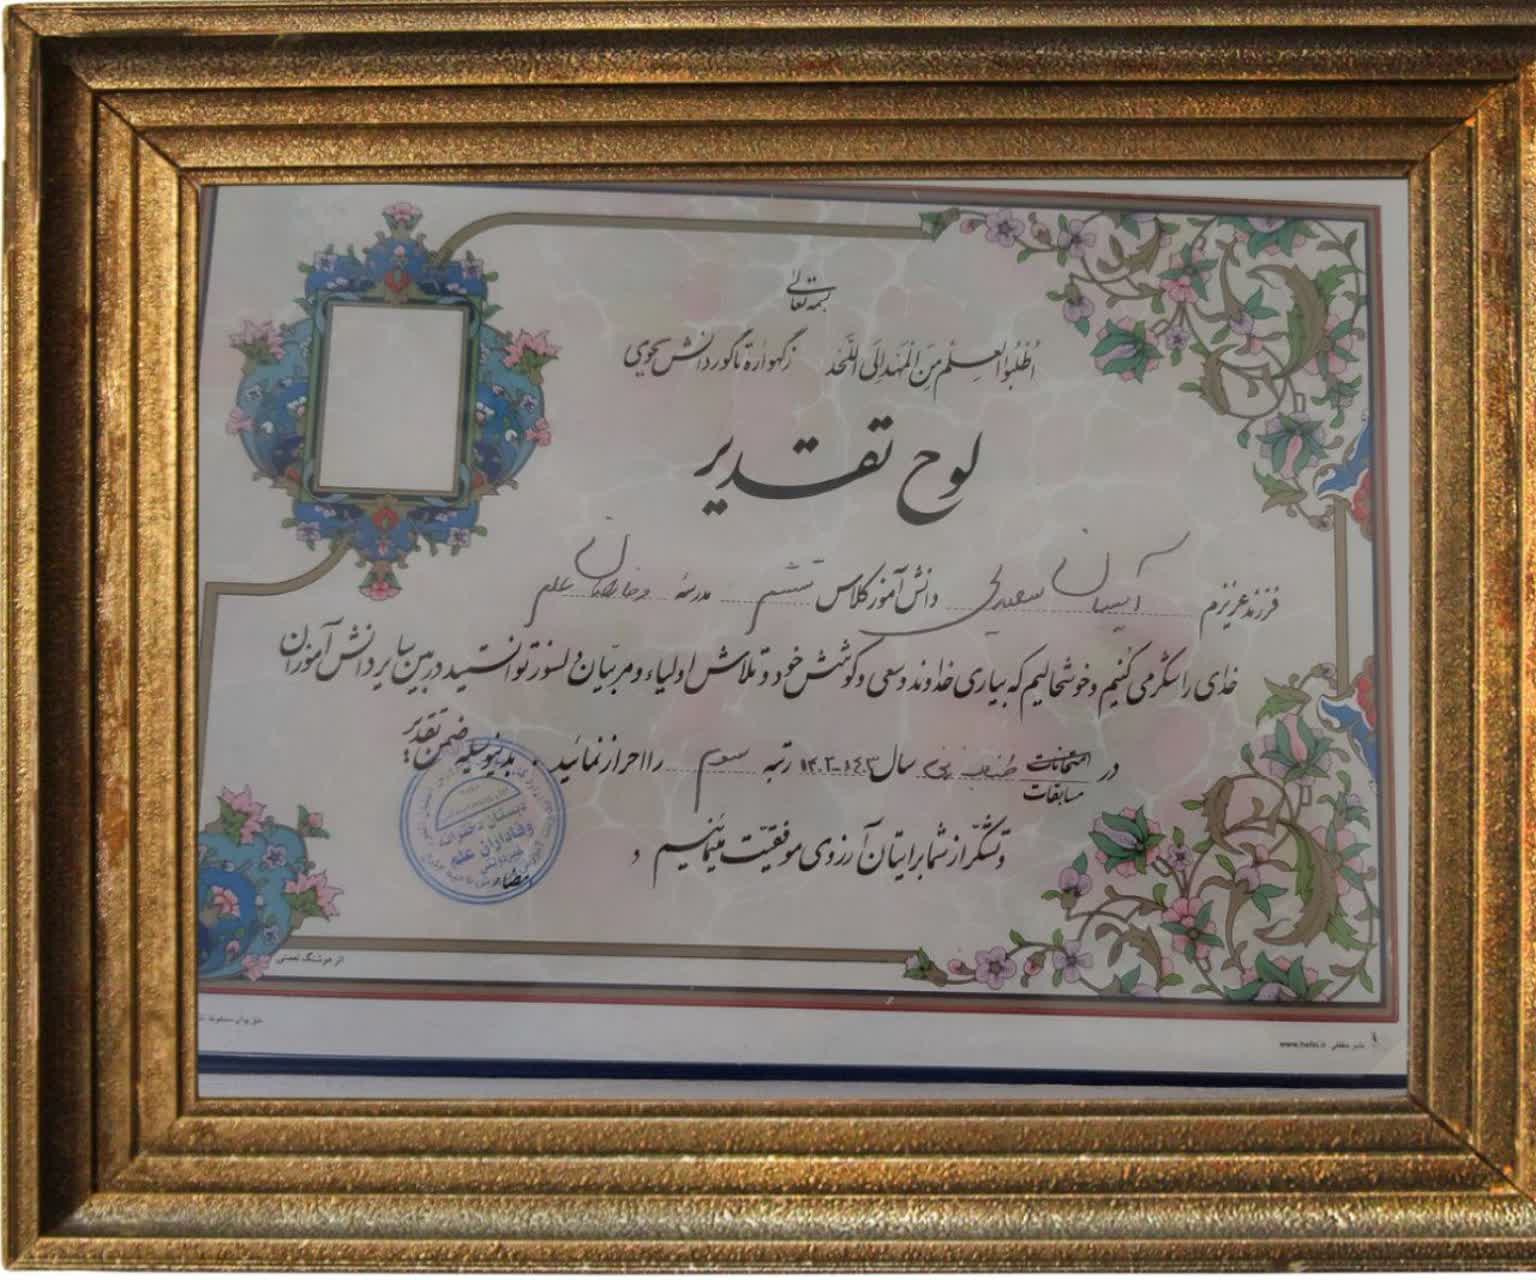 بسمه تعالی
اُطْلُبُوا الْعِلْمَ مِنَ الْمَهْدِ اِلَی اللَّحْد ز گهواره تا گور دانش بجوی
لوح تقدیر
فرزند عزیزم آسمان سعیدی دانش آموز کلاس ششم مدرسهٔ وفاداران علم
خدای را شکر می کنیم و خوشحالیم که بیاری خداوند و سعی و کوشش خود و تلاش اولیاء و مربیان دلسوز توانستید در بین سایر دانش آموزان
در امتحانات سال ۱۴۰۲-۱۴۰۳ رتبه سوم را احراز نمائید. بدینوسیله ضمن تقدیر
مسابقات
و تشکر از شما برایتان آرزوی موفقیت مینمائیم
دبستان دخترانه
وفاداران علم
امضاء
اثر هوشنگ نعمتی
www.hafei.ir